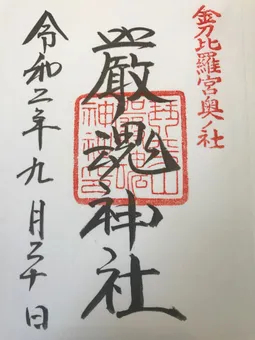 金刀比羅宮奥ノ社
嚴魂神社
令和二年九月二十日